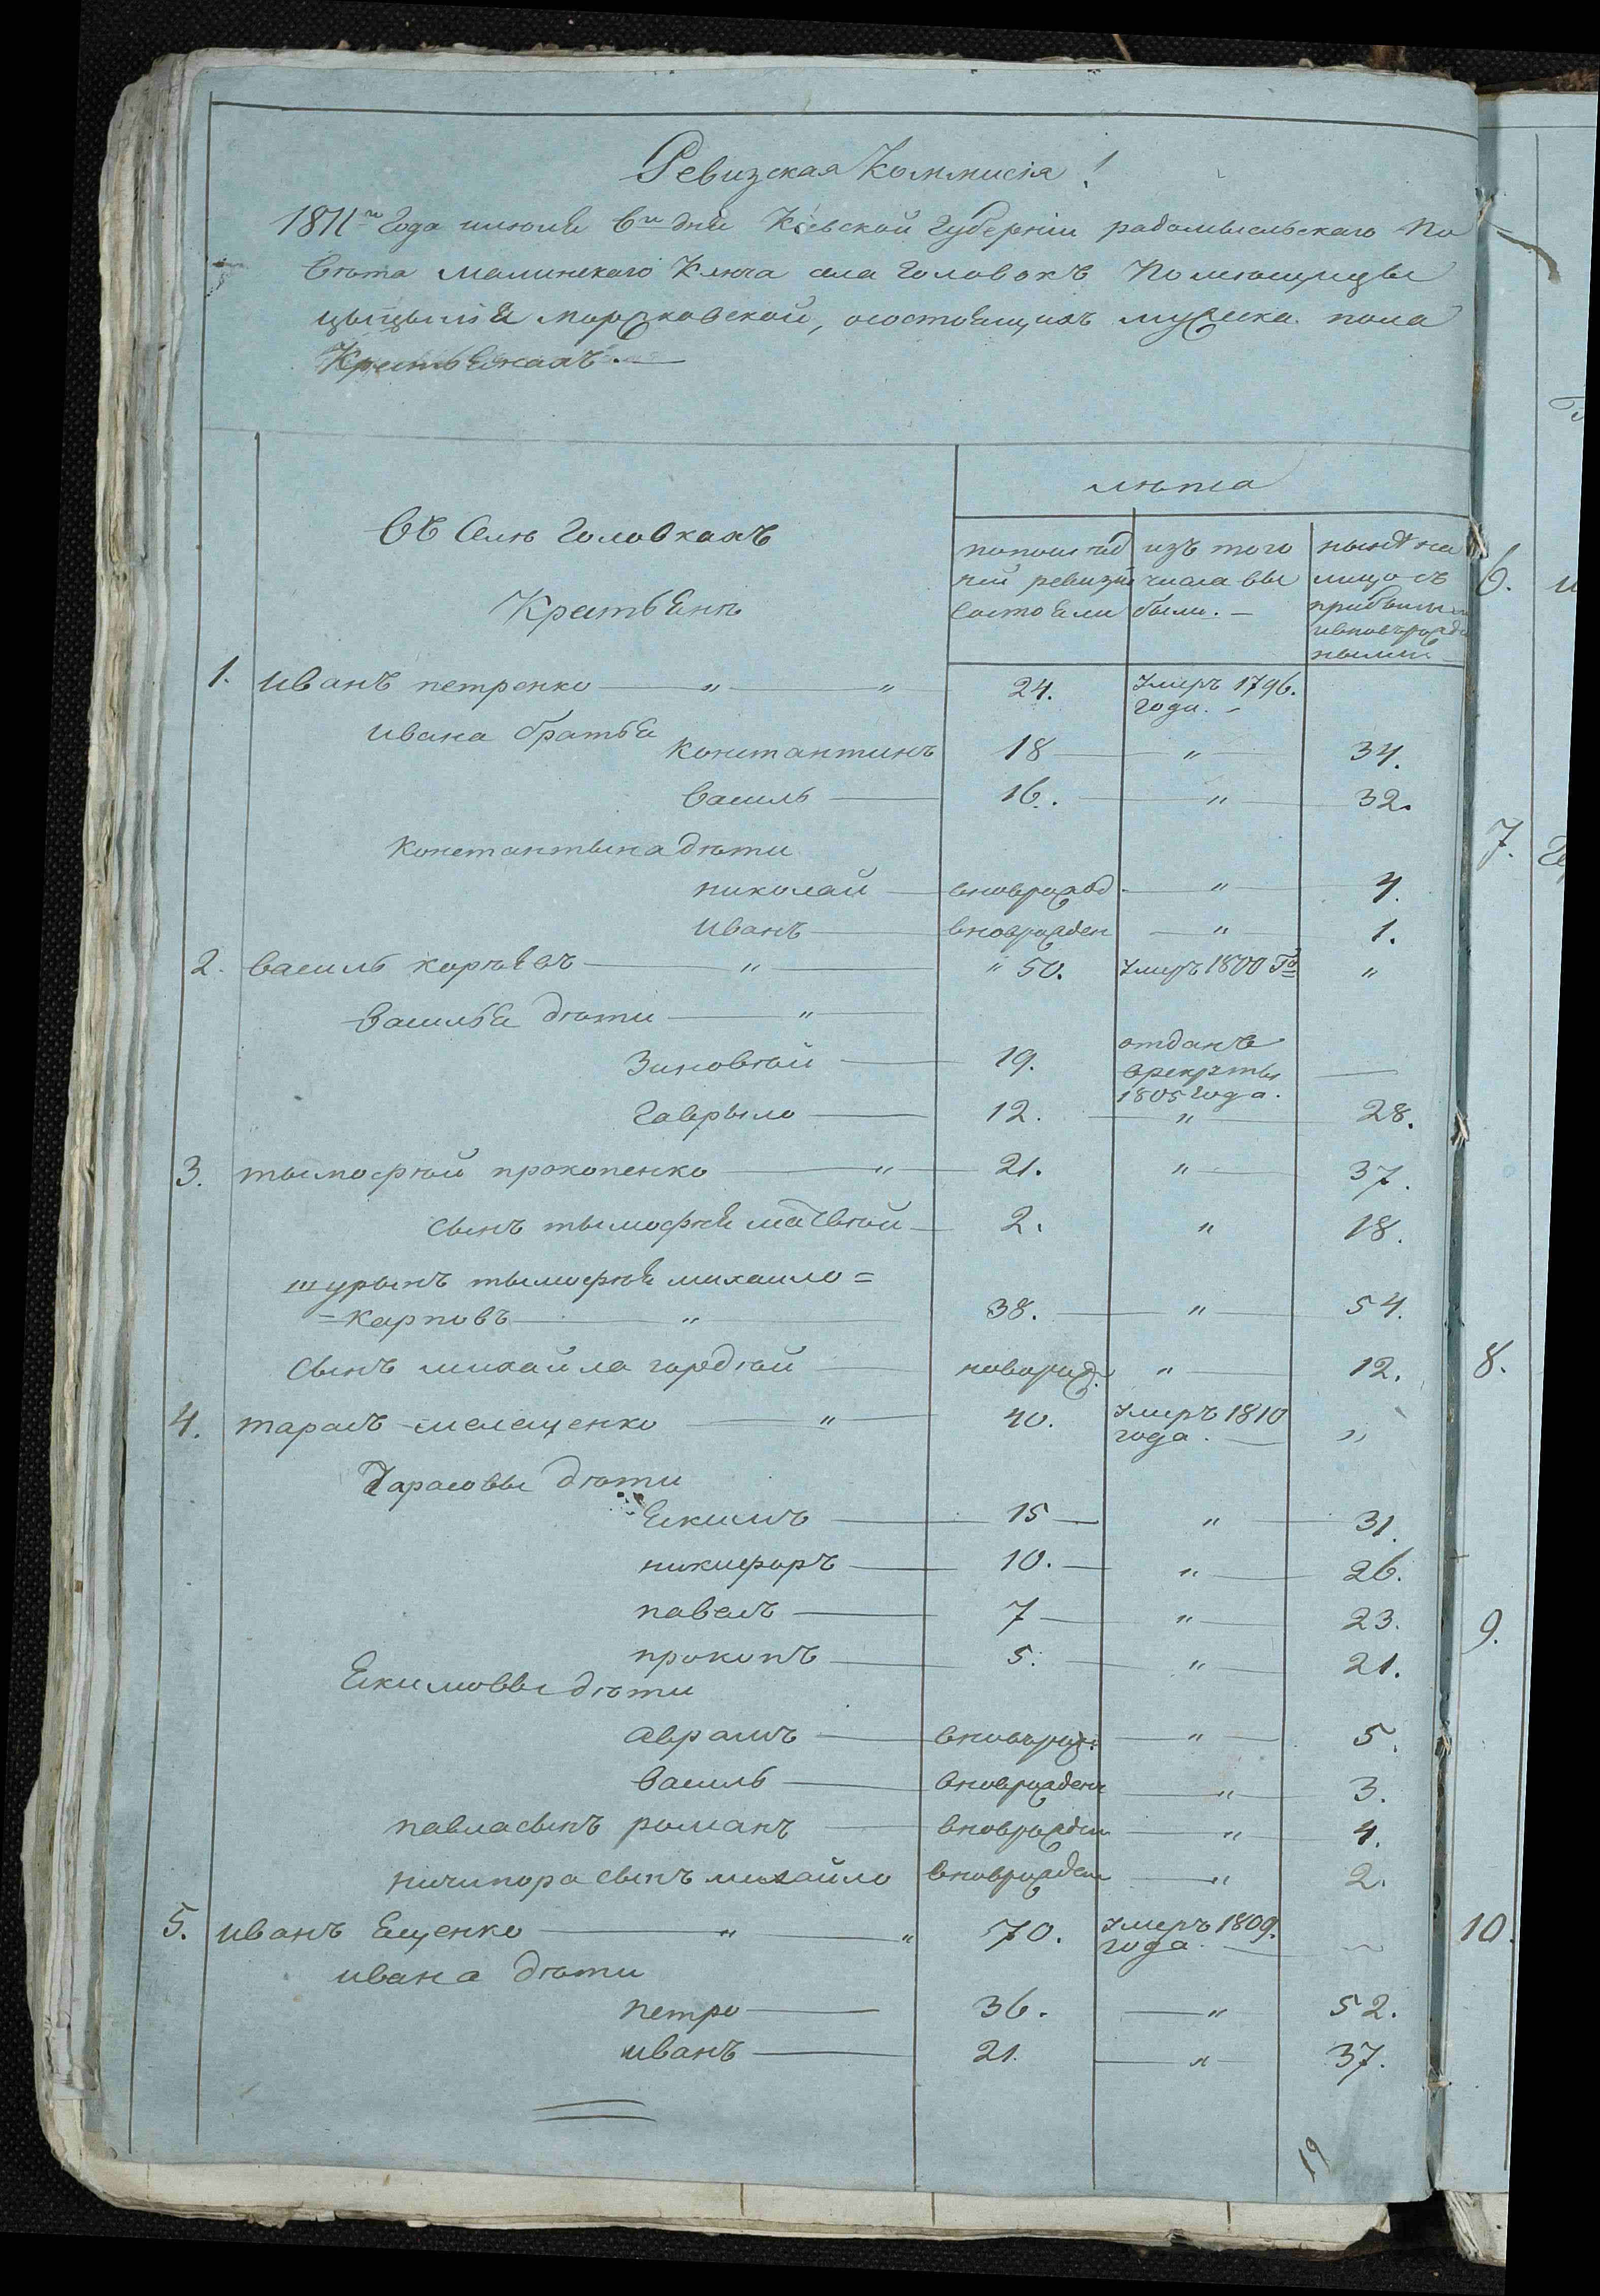 Ревизская Коммисія!
1811го Года июля 6го дня Кіевской Губерніи радомысльскаго По
вѣта малинскаго Ключа села Головокъ Помѣщицы
цыцыліи морзковской, осостоящихъ мужеска пола
Крестьянахъ.
лѣта
Въ Селѣ Головкахъ
Крестьянъ
попослѣд изъ того нынѣ на
ней ревизіи числа вы лицо съ
состояли были. прибылы
ивновьрожде
ными
1. иванъ петренко " " 24. умеръ 1796.
года.
ивана братья
константинъ 18 " 34.
василь 16. " 32.
константина дѣти
николай вноврожд " 4.
иванъ вноврожден " 1.
2. василь " " 50. умеръ 1800 Го "
василья дѣти "
Зиновѣй 19. отданъ
врекруты
1805 года.
гаврыло 12. " 28.
3. тымофѣй прокопенко " 21. " 37.
сынъ тымофѣя матвѣй 2. " 18.
шурынъ тымофѣя михаило=
=карповъ " 38. " 54.
сынъ михайла гордѣй новорожд. " 12.
4. тарасъ мелещенко " 40. умеръ 1810
года. "
Тарасовы дѣти
Екимъ 15 " 31.
никифоръ 10. " 26.
павелъ 7 " 23.
прокопъ 5. " 21.
Екимовы дѣти
аврамъ вноворожд. " 5.
василь вноврожден " 3.
павла сынъ романъ вноврожден " 4.
ничипора сынъ михайло вноврожден " 2.
5. иванъ Ещенко " " 70. умеръ 1809.
года.
ивана дѣти
петро 36. " 52.
иванъ 21. " 37.
19
6.
7.
8.
9.
10.